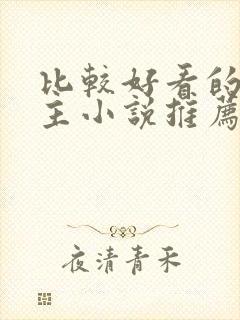 比較好看的
主小說推薦
夜清青禾